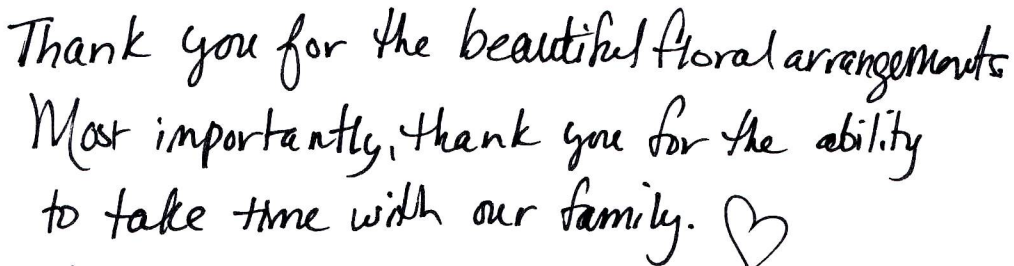 Thank you for the beautiful floral arrangements
Most importantly, thank you for the ability
to take time with our family. ♡